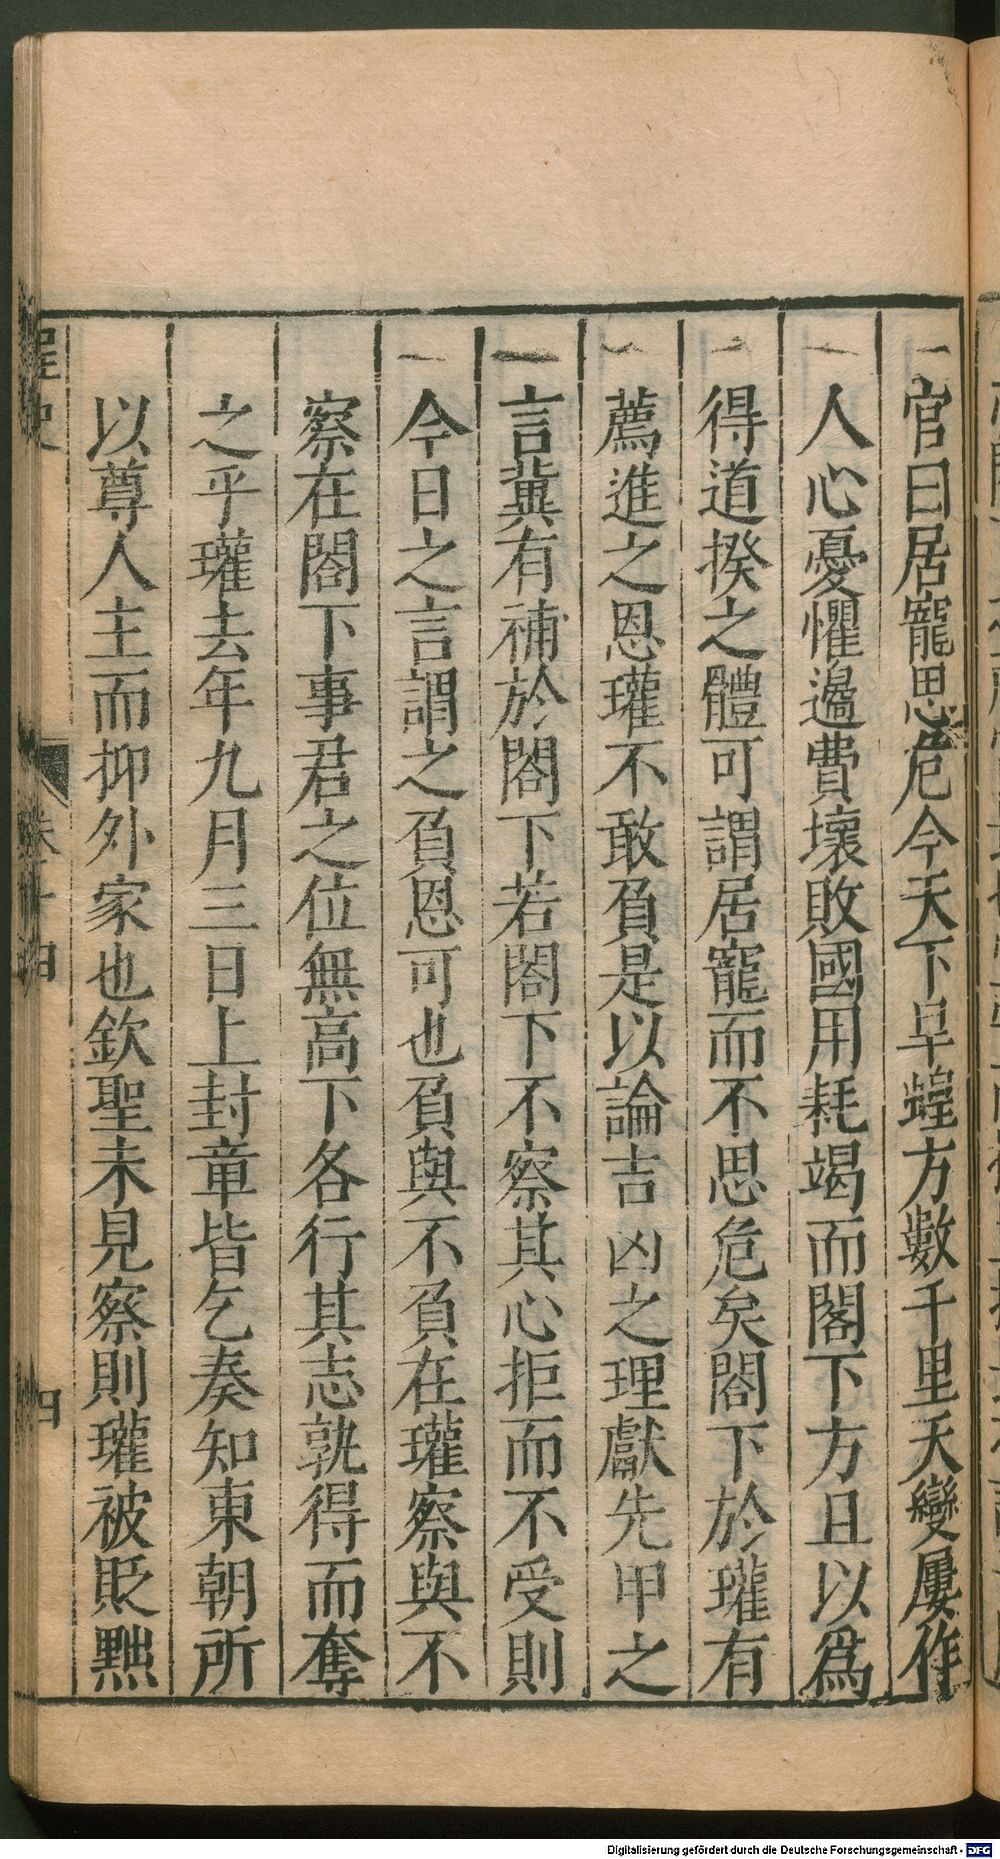 官曰居寵思危今天下旱蝗方數千里天變屢作
人心憂懼邊費壞敗國用耗竭而閣下方且以爲
得道揆之體可謂居寵而不思危矣閣下於瓘有
薦進之恩瓘不敢負是以論吉凶之理獻先甲之
言冀有補於閣下若閣下不察其心拒而不受則
今日之言謂之負恩可也負與不負在瓘察與不
察在閣下事君之位無高下各行其志孰得而奪
之乎瓘去年九月三日上封章皆乞奏知東朝所
以尊人主而抑外家也欽聖未見察則瓘被貶黜
桯史
卷十四
四
Digitalisierung gefördert durch die Deutsche Forschungsgemeinschaft - DFG